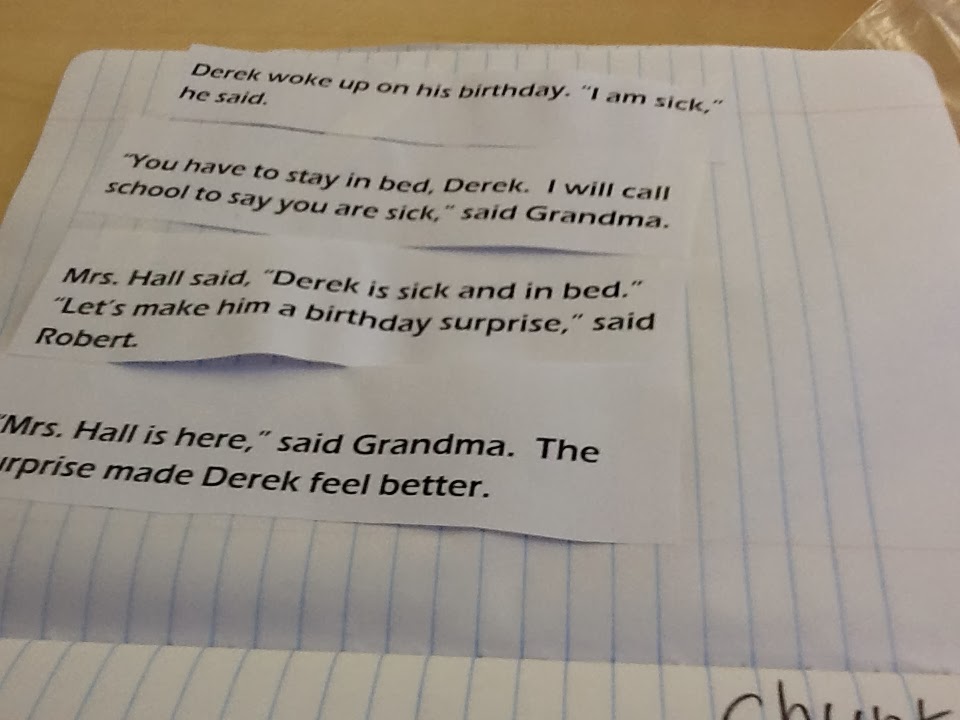 Derek woke up on his birthday. “I am sick,”
he said.
“You have to stay in bed, Derek.  I will call
school to say you are sick,” said Grandma.
Mrs. Hall said, “Derek is sick and in bed.”
“Let’s make him a birthday surprise,” said
Robert.
“Mrs. Hall is here,” said Grandma.  The
urprise made Derek feel better.